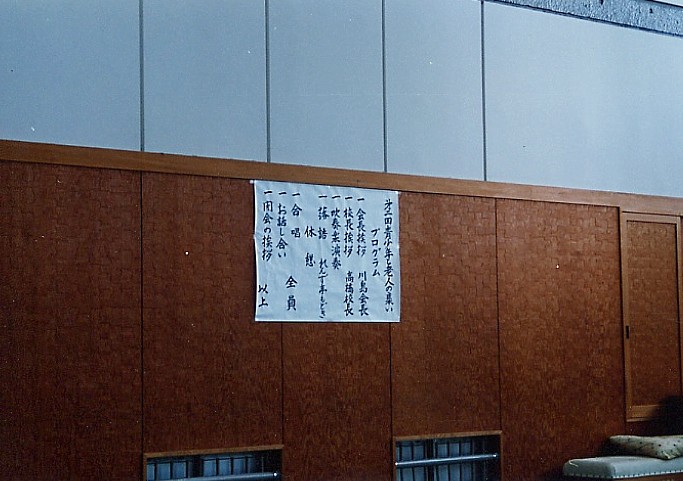 青少年と老人の集い
プログラム
一 会長挨拶 川島会長
一 校長挨拶 高橋校長
一 吹奏楽演奏
一 落語
休憩
一 合唱 全員
一 お話し合い
一 閉会の挨拶
以上